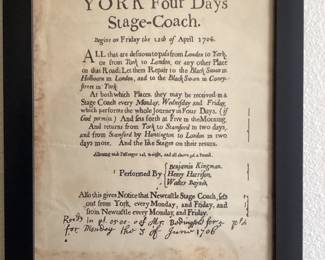 YORK Four Days
Stage-Coach.
Begins on Friday the 12th of April 1706.
ALL that are desirous to pass from London to York,
or from York to London, or any other Place
on that Road; Let them Repair to the Black Swan in
Holbourn in London, and to the Black Swan in Coney-
street in York.
At both which Places, they may be received in a
Stage Coach every Monday, Wednesday and Friday,
which performs the whole Journey in Four Days, (if
God permits.) And sets forth at Five in the Morning.
And returns from York to Stamford in two days,
and from Stamford by Huntington to London in two
days more. And the like Stages on their return.
Allowing each Passenger 14l. weight, and all above 3d. a Pound.
Performed By
Benjamin Kingman.
Henry Harrison,
Walter Bayne's,
Also this gives Notice that Newcastle Stage Coach, sets
out from York, every Monday, and Friday, and
from Newcastle every Monday, and Friday.
of Mr. Bodingfold for
for Monday the 3 of June 1706